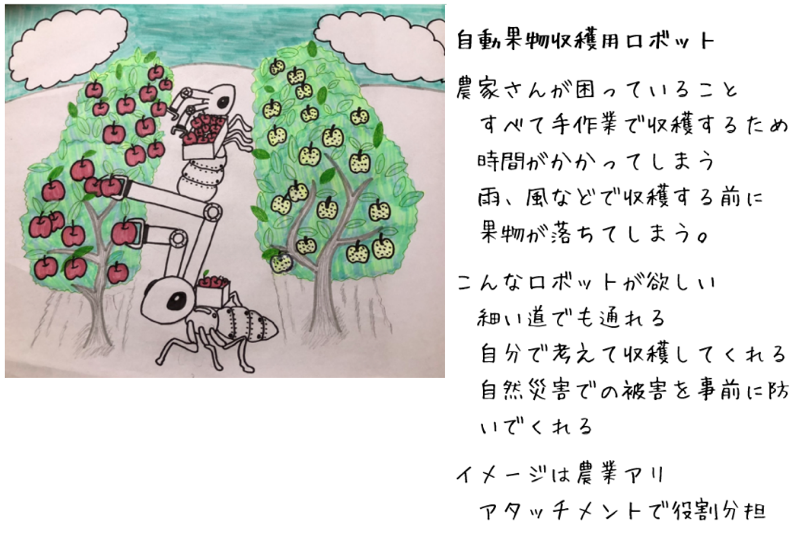 自動果物収穫用ロボット
農家さんが困っていること
すべて手作業で収穫するため
時間がかかってしまう
雨、風などで収穫する前に
果物が落ちてしまう。
こんなロボットが欲しい
細い道でも通れる
自分で考えて収穫してくれる
自然災害での被害を事前に防
いでくれる
イメージは農業アリ
アタッチメントで役割分担